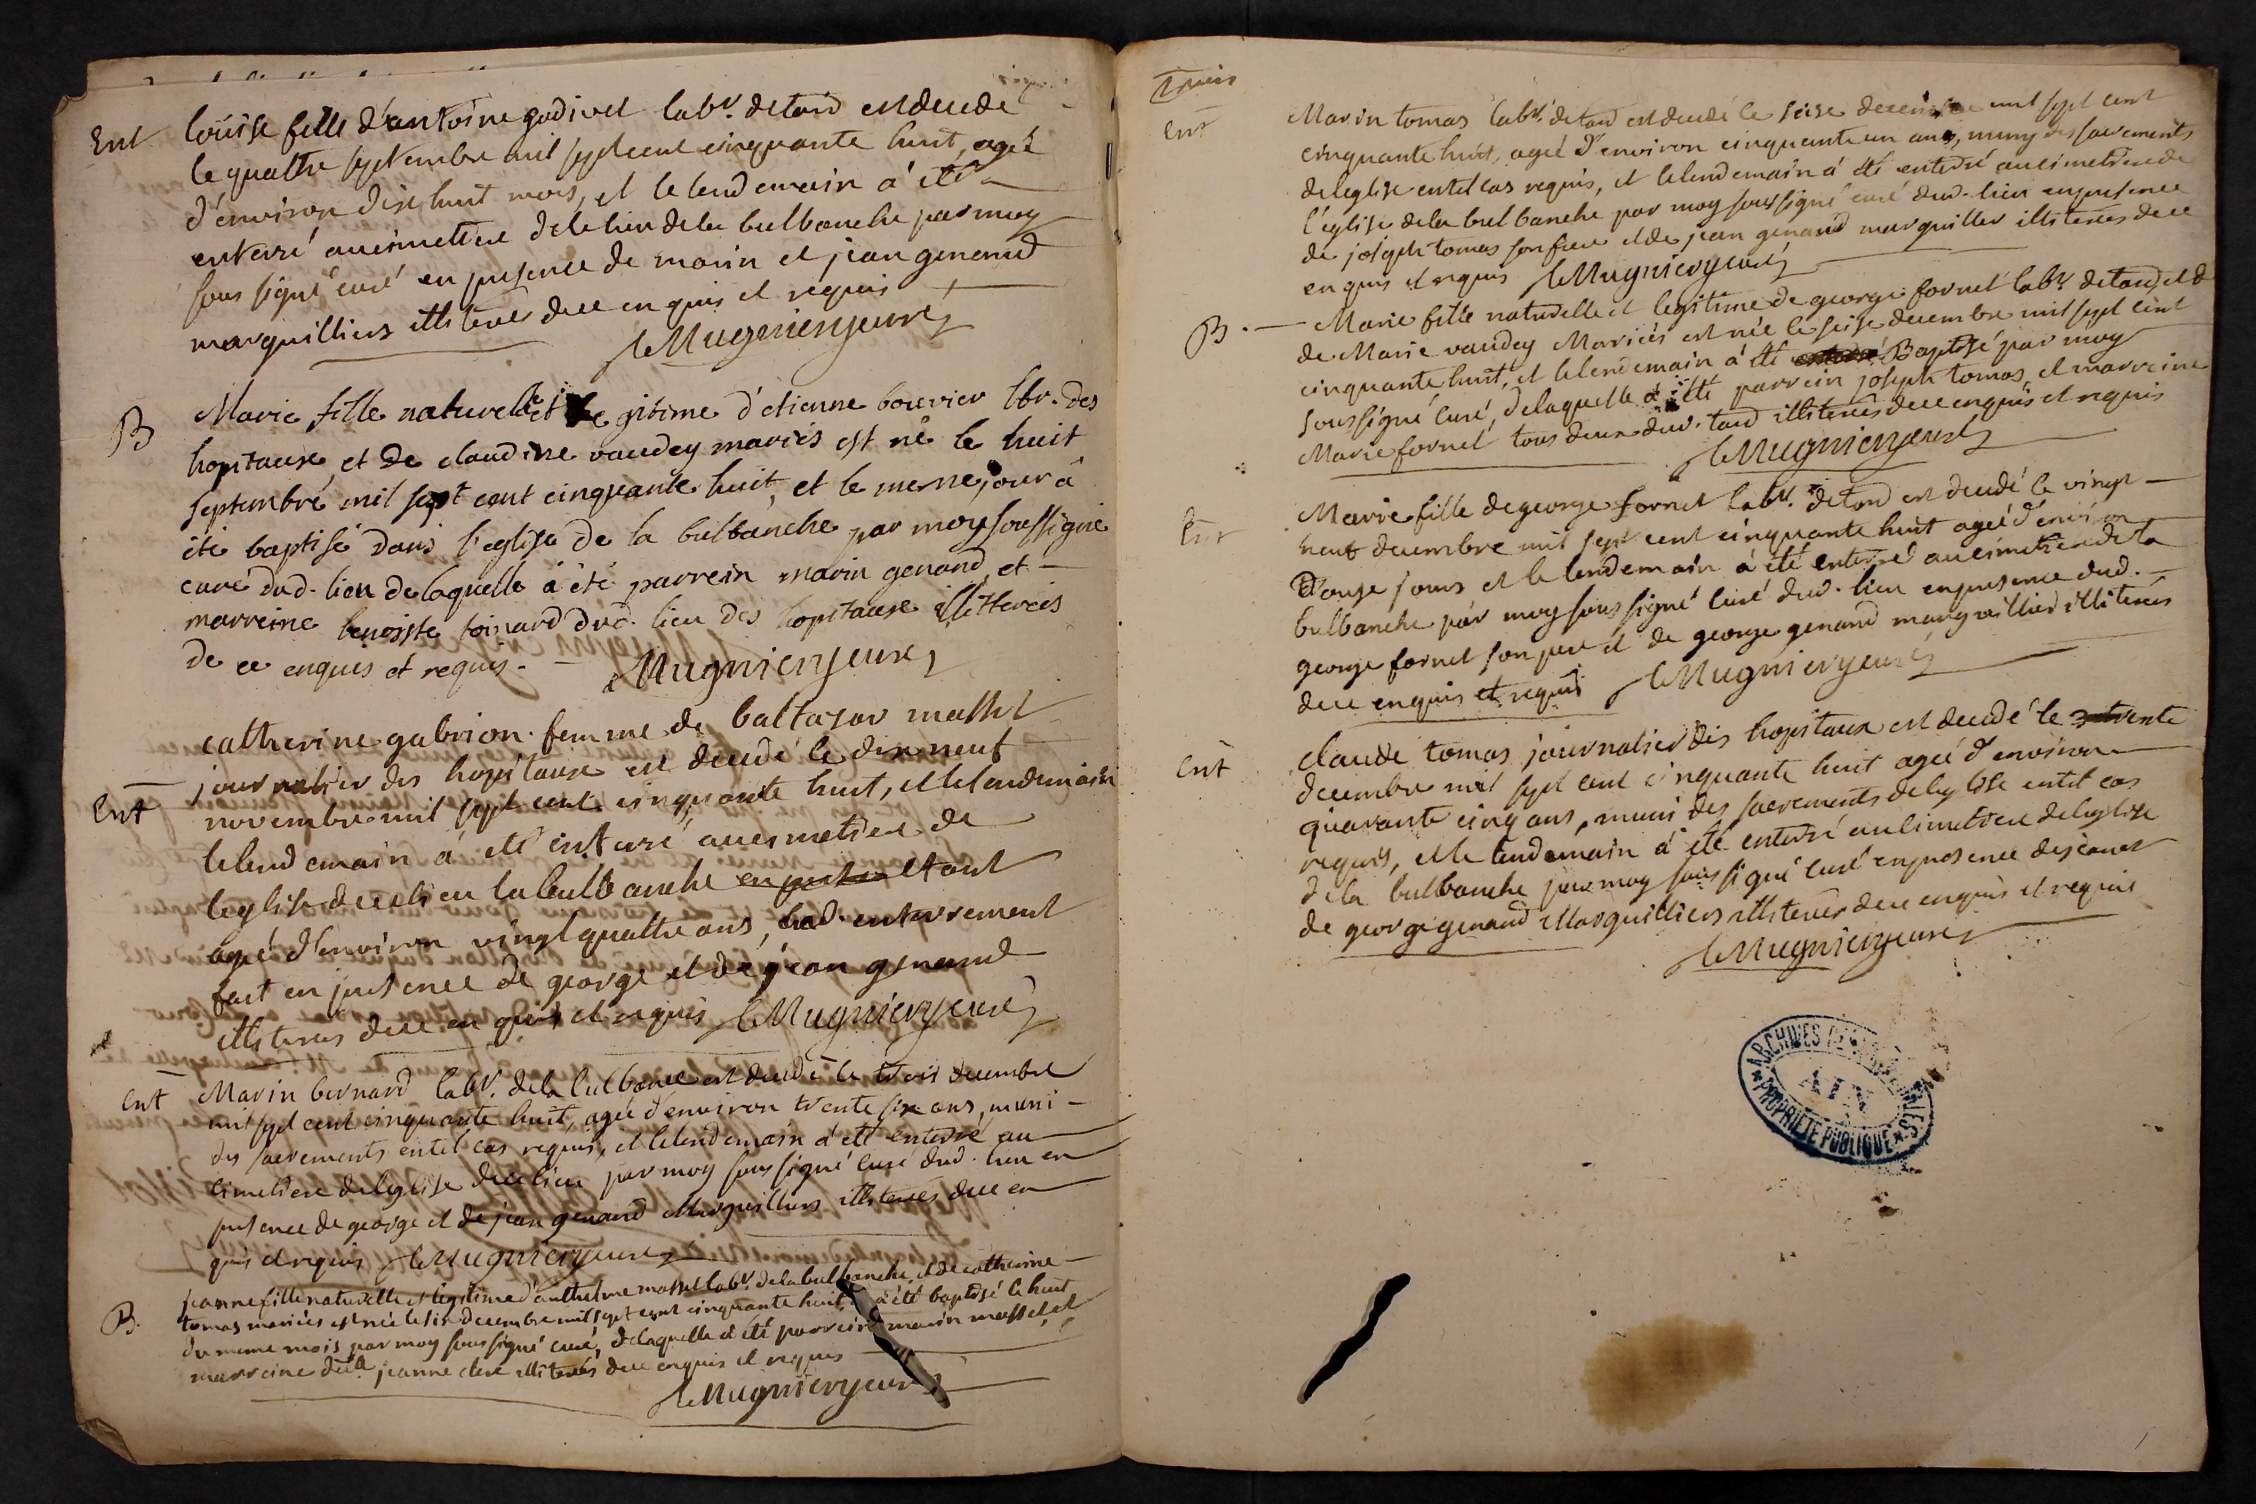 Ent
loüise fille d'antoine godivet labr. detard est decede
le quattre septembre mil sept cent cinquante huit, ageé
d'environ dix huit mois, et le lendemain a eté
enterré au cimettiere de le lieu dela bulbanche par moy
sous signé curé en presence de marin et jean genand
marguilliers illiterés de ce enquis et requis
Mugnier curé
B
Marie fille naturelle et legitime d'etienne bouvier lbr. des
hopitaux et de claudine vaudey mariés est né le huit
septembre mil sept cent cinquante huit, et le meme jour à
été baptisé dans l'eglise de la bulbanche par moy soussigné
curé dud. lieu de laquelle à été parrein marin genand, et
marreine benoiste foinard dud. lieu des hopitaux illitterés
de ce enquis et requis.
Mugnier curé
Ent
catherine gabrion femme de baltasar masset
journalier des hopitaux est decedé le dix neuf
novembre mil sept cent cinquante huit, et lelendemain
lelendemain a eté enterré au cimetiere de
leglise de ce lieu la bulbanche en presence etant
agé d'environ vingt quattre ans, led. enterrement
fait en presence de george et de jean genand
illiterés de ce en quis et requis Mugnier curé
Ent
Marin bernard labr. dela bulbance est decedé le trois decembre
mil sept cent cinquante huit, ageé d'environ trente six ans, muni
des sacrements entel cas requis, et lelendemain a eté enterré au
cimetiere deleglise de ce lieu par moy sous signé curé dud. lieu en
presence de george et de jean genand Marguilliers illiterés de ce en
quis et requis Mugnier curé
B.
jeanne fille naturelle et legitime d'anthelme masset labr. dela bulbanche, et de catherine
tomas mariés est née le six decembre mil sept cent cinquante huit, et a été baptisé le huit
du meme mois par moy sous signé curé, de laquelle a été parrein marin masset, et
marreine jeanne clere illiterés de ce enquis et requis
Mugnier curé
Ent
Marin tomas labr. de tard est decedé le seise decembre mil sept cent
cinquante huit, ageé d'environ cinquante un ans, muny des sacrements
deleglise entel cas requis, et lelendemain a été enterré au cimetiere de
l'église dela bulbanche par moy soussigné curé dud. lieu enpresence
de joseph tomas son frere et de jean genand marguiller illiterés de ce
en quis et requis Mugnier curé
B.
Marie fille naturelle et legitime de george fornet labr. de tard, et de
de Marie vaudey Mariés est née le seise decembre mil sept cent
cinquante huit, et lelendemain a eté enterré Baptisé par moy
soussigné curé, delaquelle a eté parrein joseph tomas, et marreine
Marie fornet tous deux dud. tard illiterés de ce enquis et requis
Mugnier curé
Ent
Marie fille de george fornet labr. de tard est decedé le vingt
neuf decembre mil sept cent cinquante huit ageé d'environ
Douze jours et le lendemain a été enterré au cimetiere de la
bulbanche par moy sous signé curé dud. lieu enpresence dud.
george fornet son pere et de george genand marguillier illiterés
de ce enquis et requis Mugnier curé
Ent
Claude tomas journalier des hopitaux est decedé le trente
decembre mil sept cent cinquante huit ageé d'environ
quarante cinq ans, muni des sacrements deleglise entel cas
requis, et le lendemain a été enterré au cimetiere deleglise
dela bulbanche par moy sous signé curé enpresence de jean et
de george genand Marguilliers illiterés de ce enquis et requis
Mugnier curé
ARCHIVES DÉPARTEMENTALES
AIN
PROPRIÉTÉ PUBLIQUE